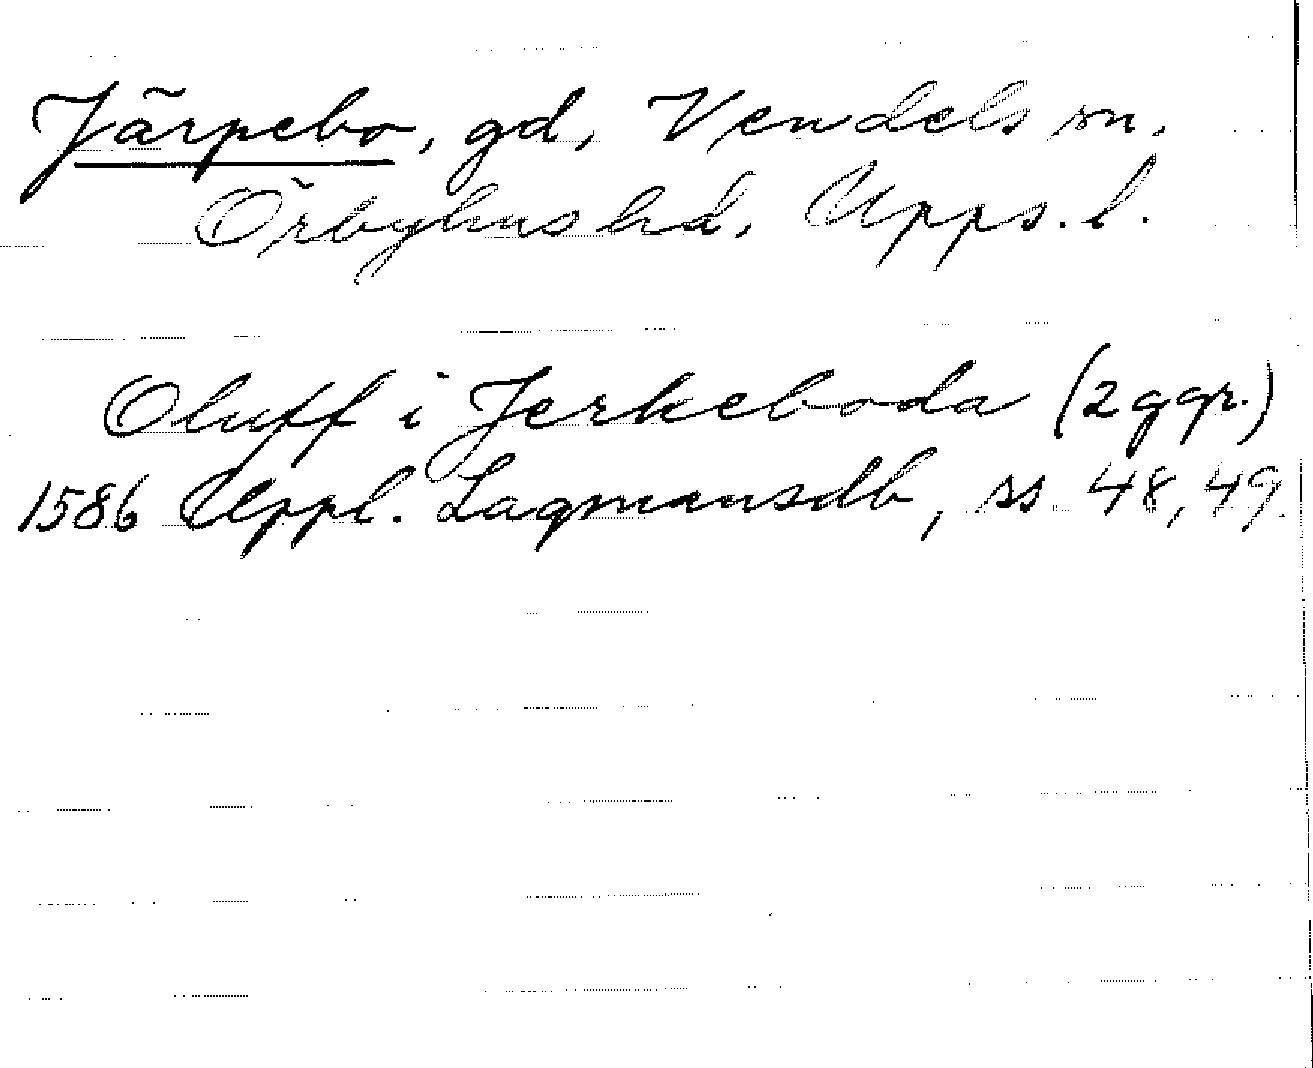 Järpebo, gd, Vendels sn.
Örbyhus hd, Upps. l.
Oluff i Jerkeboda (2 ggr.)
1586 Uppl. Lagmansdb, ss 48, 49.